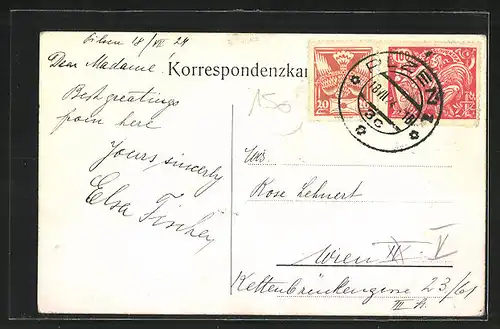 Pilsen 18/VII 24
Dear Madame
Korrespondenzkar
Best greetings
from here
Yours, sincerly
Elsa Fischer
150
20
100
PLZEŇ 1
3c
Rose Lehnert
Wien V
Kettenbrückengasse 23/61